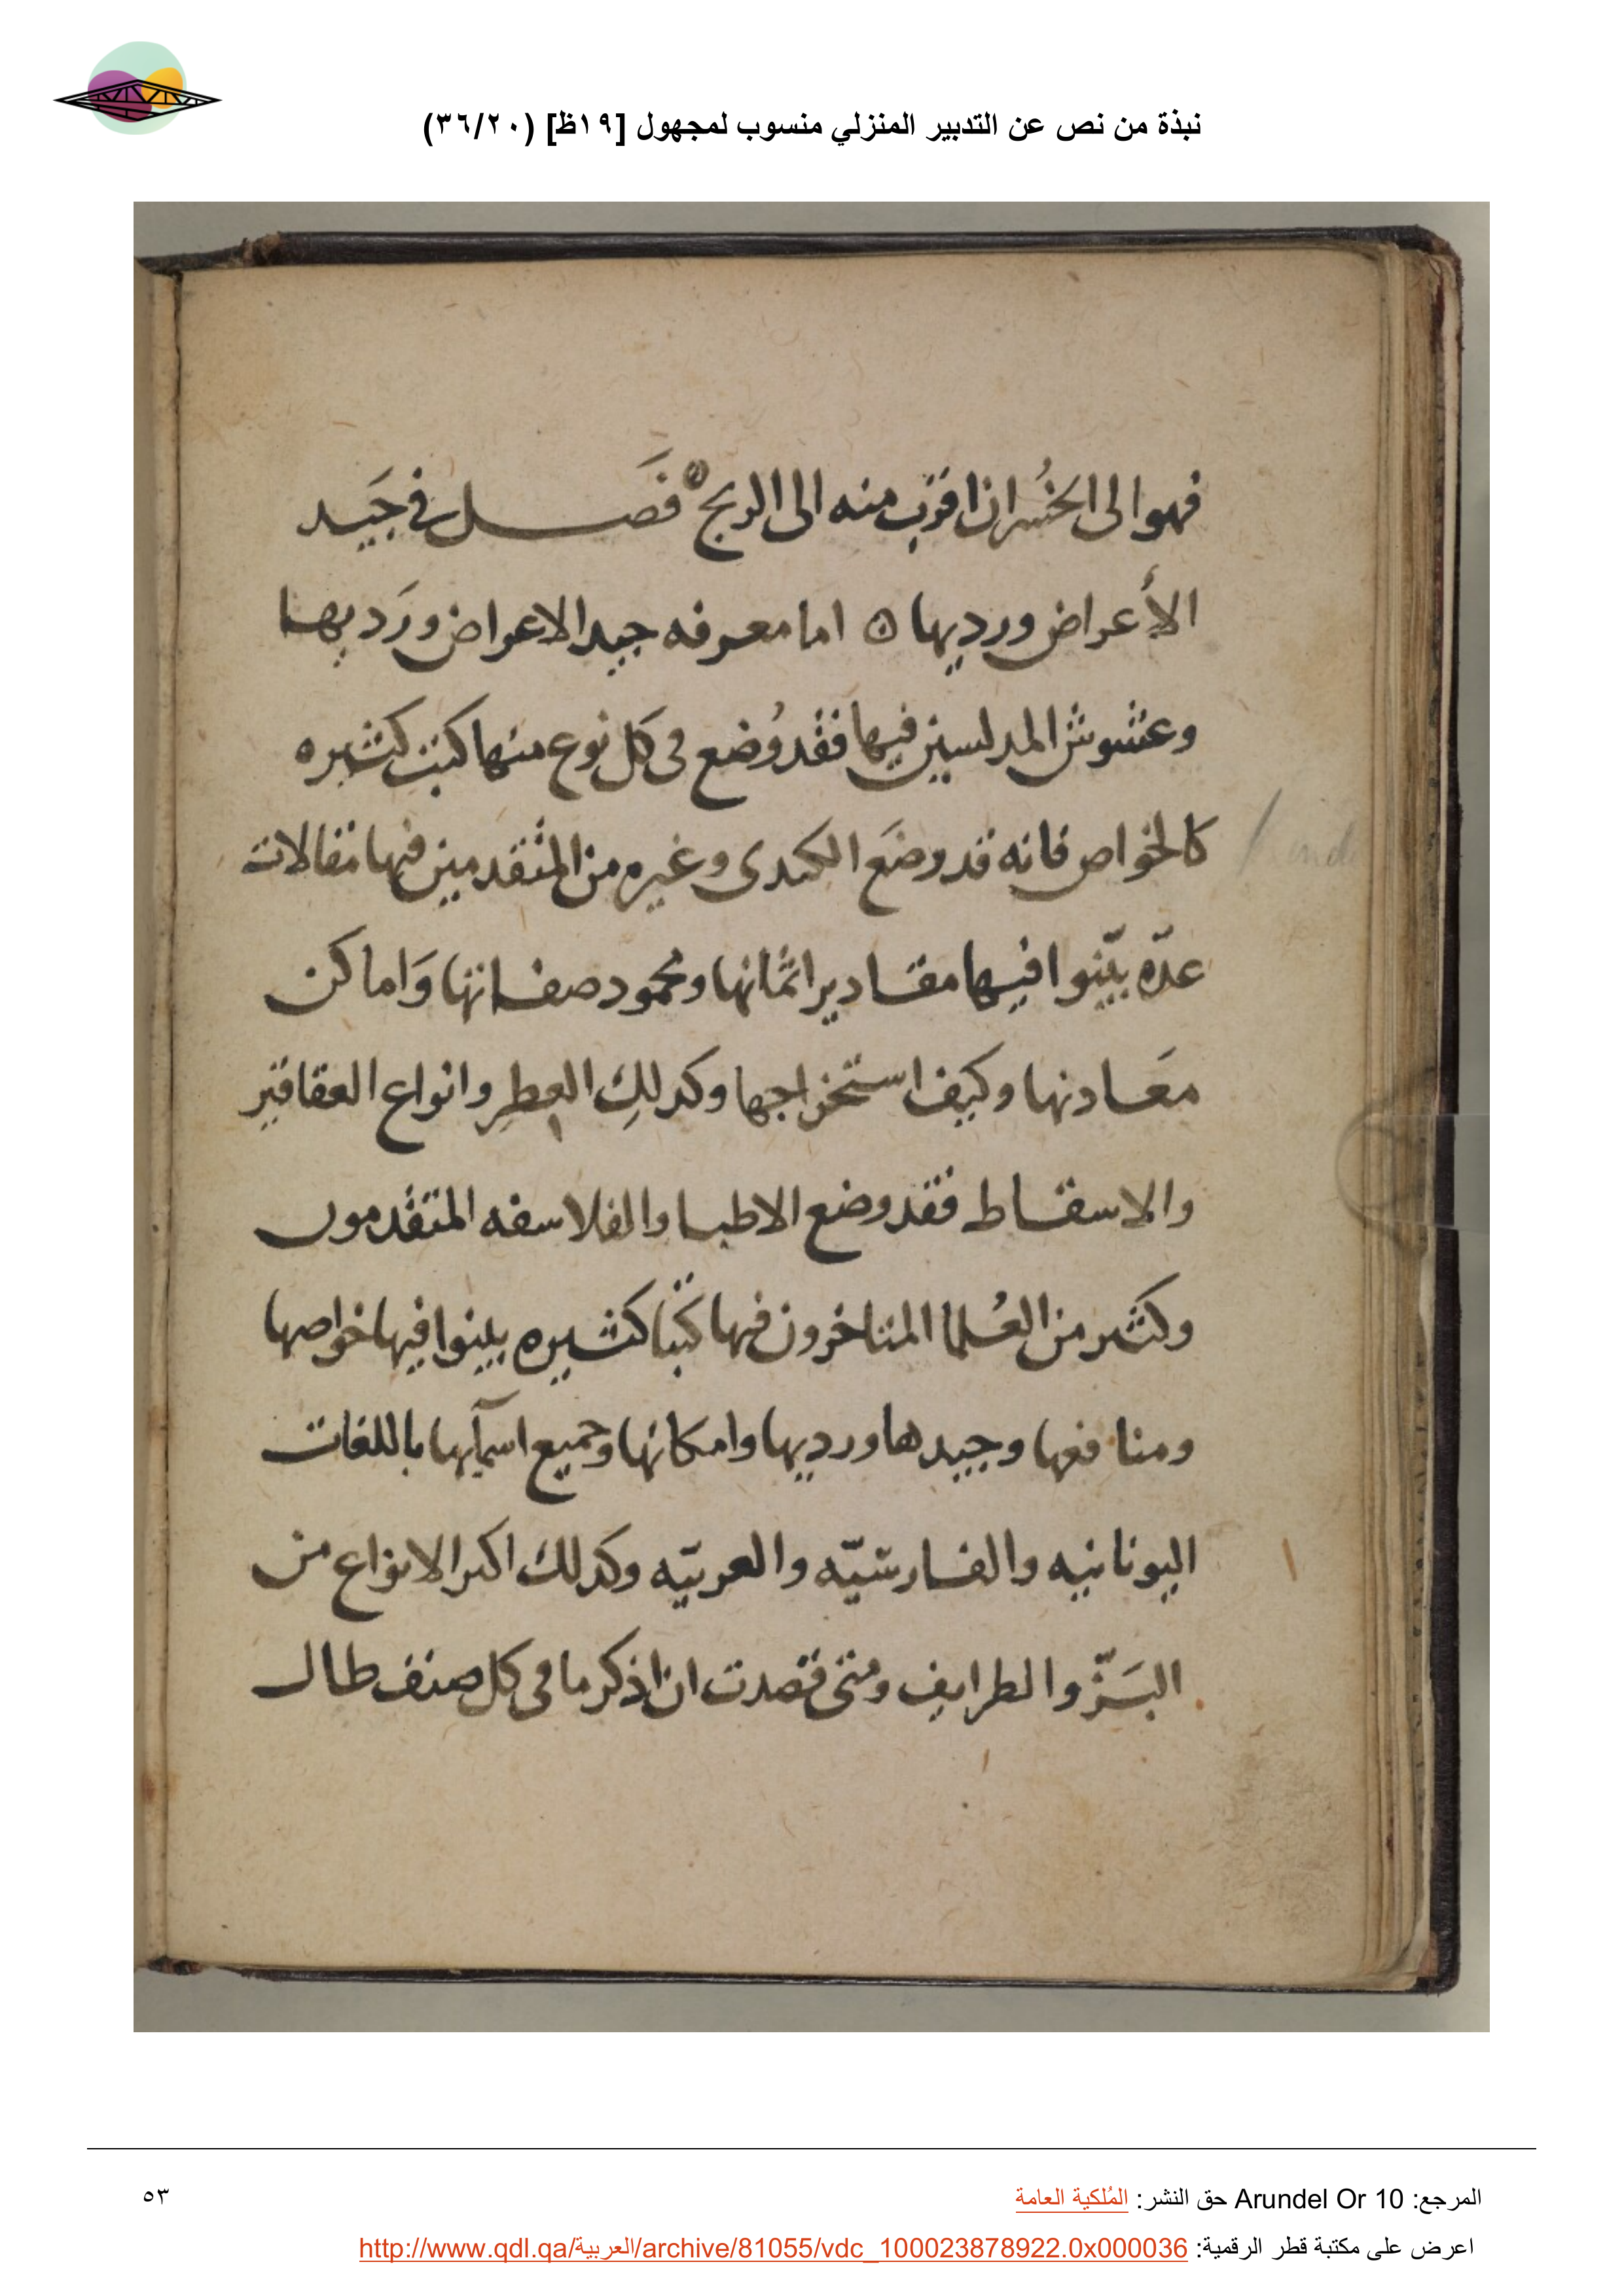 نبذة من نص عن التدبير المنزلي منسوب لمجهول [١٩ظ] (٣٦/٢٠)
فهو الى الخُسران اقرب منه الى الربح ه فَصل في جَيد
الأعراض ورديها ه اما معرفه جيد الاعراض ورَديها
وغشوش المدلسين فيها فقد وُضع فى كل نوع منها كتب كثيره
كالخواص فانه قد وضَع الكندى وغيره من المتقدمين فيها مقالات
عدّه بيّنوا فيها مقادير اثمانها ومحمود صفاتها وَاماكن
معَادنها وكيف استخراجها وكدلكِ العِطر وانواع العقاقير
والاسقاط فقد وضع الاطبا والفلاسفه المتقدمون
وكثير من العُلما المتاخرون فيها كتبًا كثيره بينوا فيها خواصها
ومنافعها وجيدها ورديها وامكانها وجميع اسمآيها باللغات
اليونانيه والفارسّيه والعربيّه وكدلك اكبر الانواع من
البَزّ والطرايف ومتى قصدت ان اذكر ما فى كل صنف طال
المرجع: Arundel Or 10 حق النشر: المُلكية العامة
٥٣
اعرض على مكتبة قطر الرقمية: http://www.qdl.qa/العربية/archive/81055/vdc_100023878922.0x000036